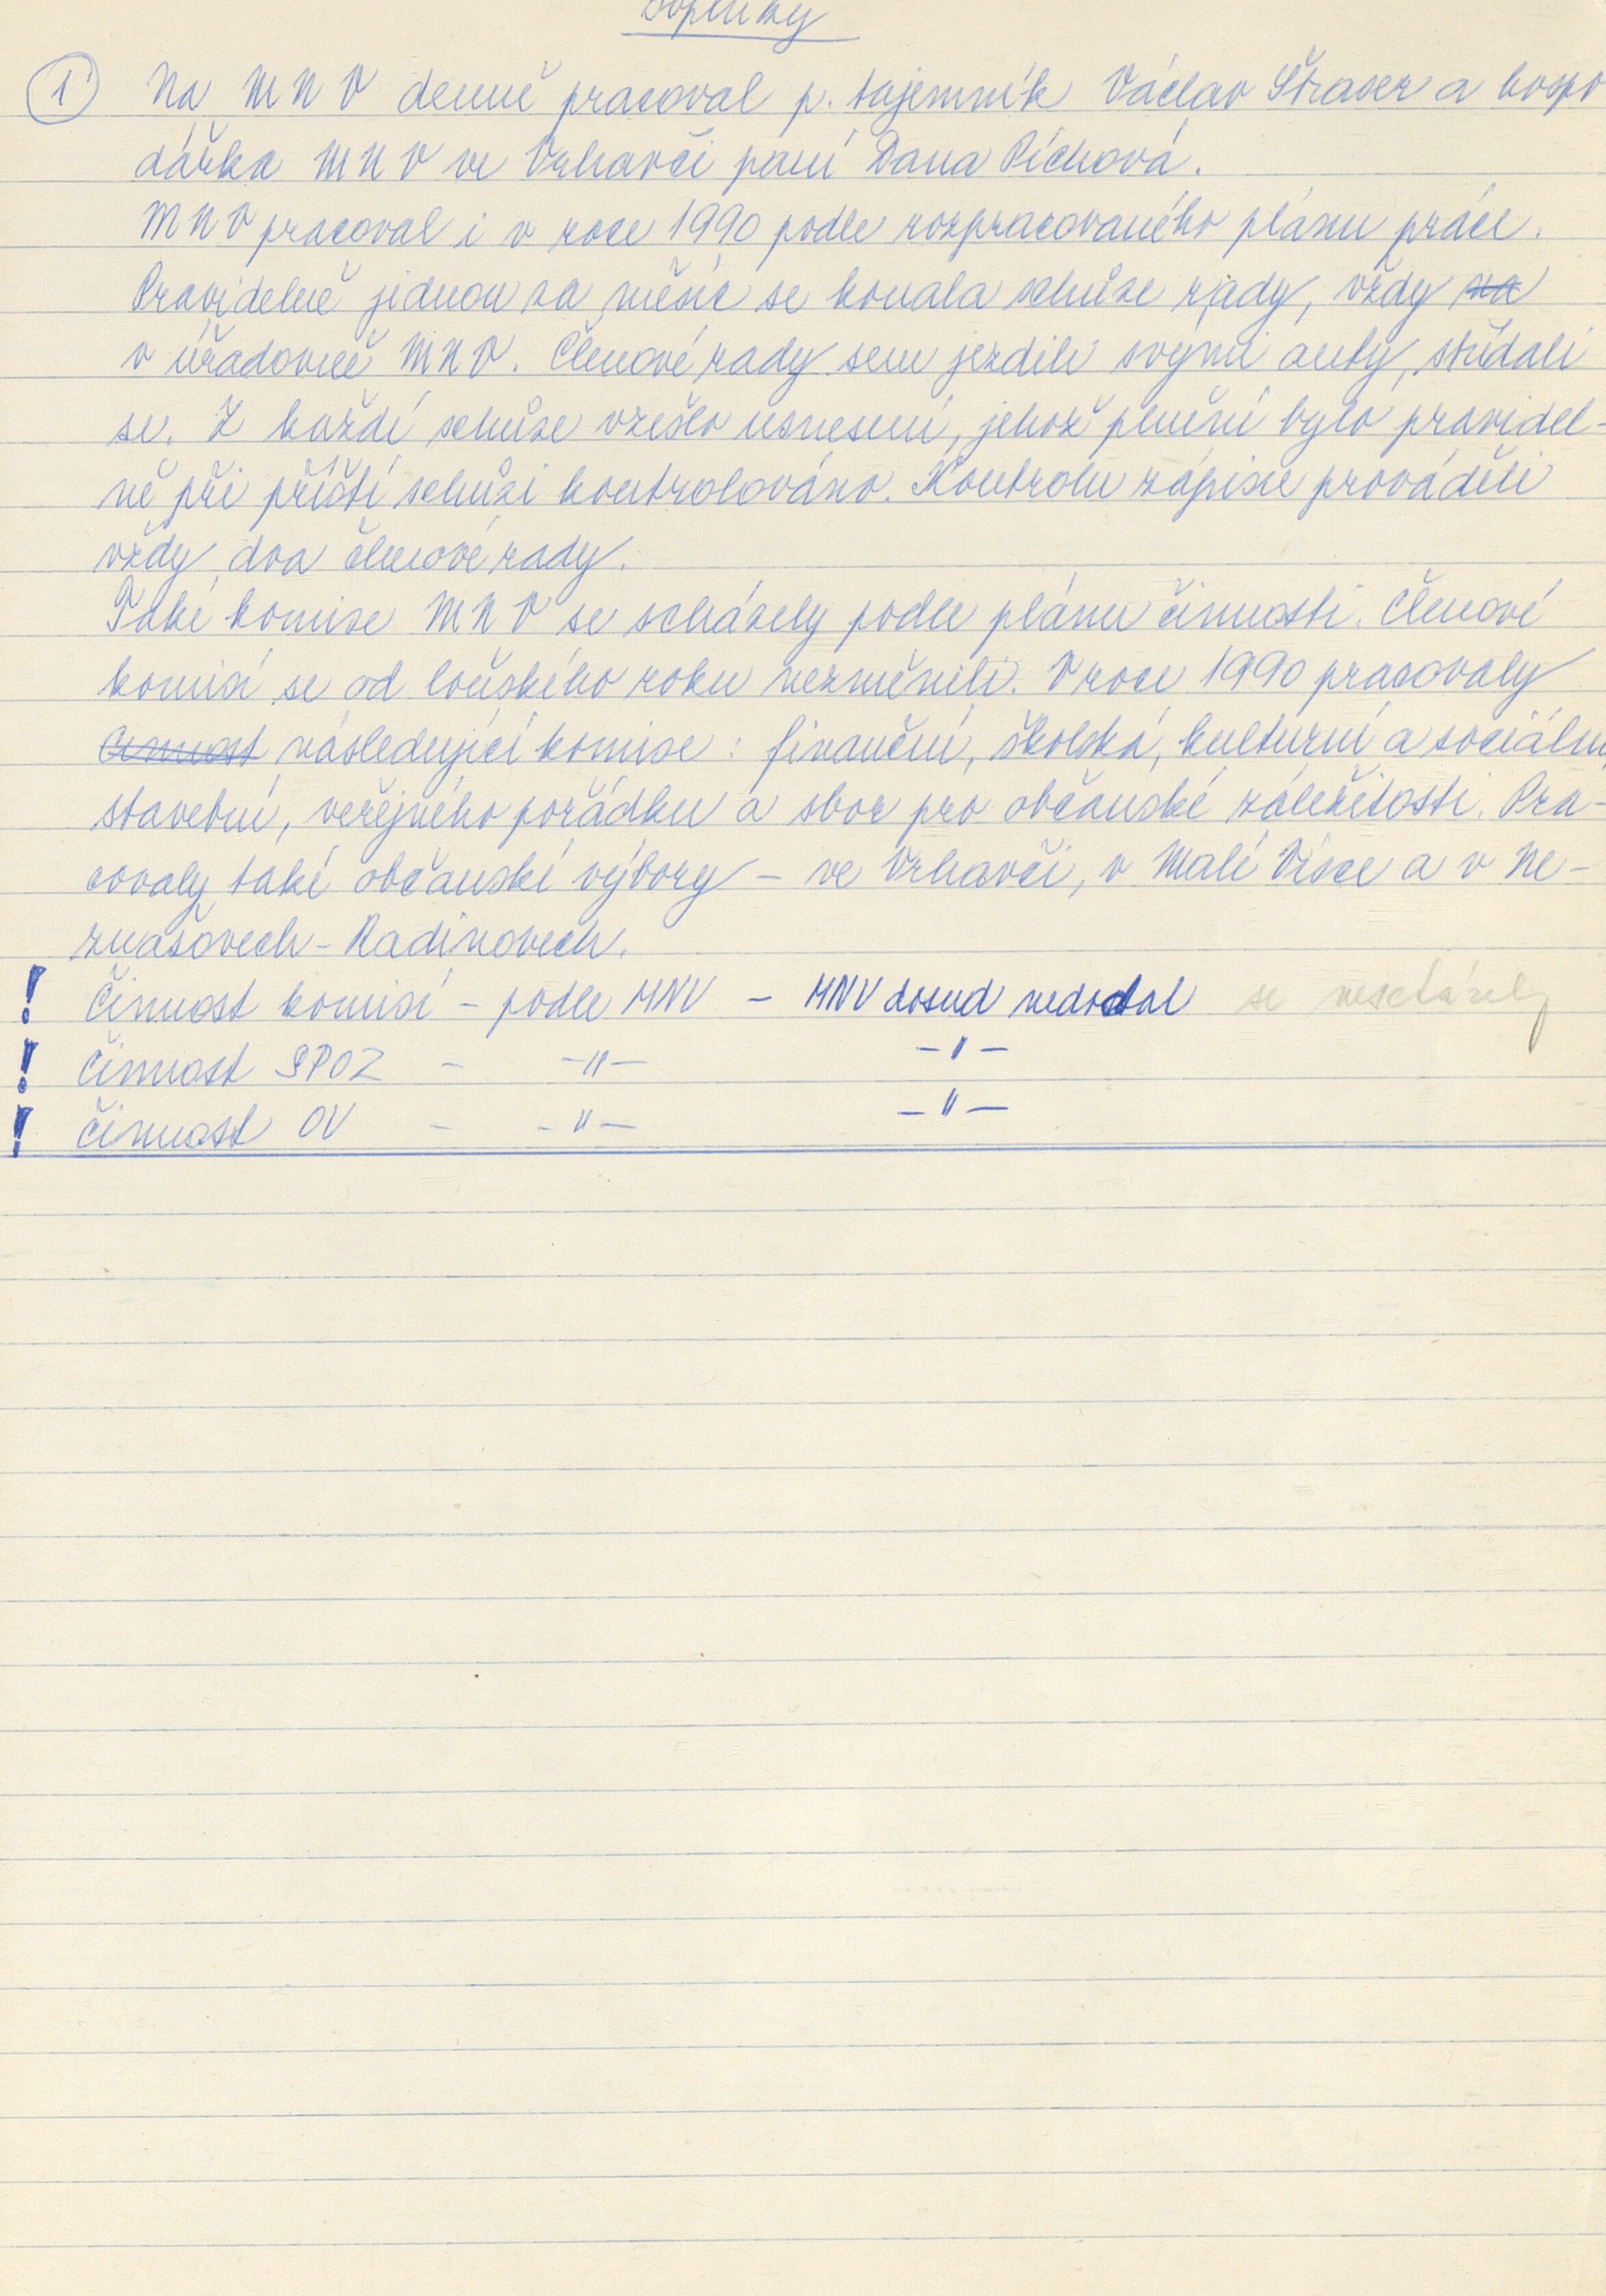 Doplňky
1 Na MNV denně pracoval p. tajemník Václav Štraser a hospo
dářka MNV ve Vrhavči paní Dana Píchová.
MNV pracoval i v roce 1990 podle rozpracovaného plánu práce.
Pravidelně jednou za měsíc se konala schůze rady, vždy na
v úřadovně MNV. Členové rady sem jezdili svými auty, střídali
se. Z každé schůze vzešlo usnesení, jehož plnění bylo pravidel-
ně při příští schůzi kontrolováno. Kontrolu zápisu prováděli
vždy dva členové rady.
Také komise MNV se scházely podle plánu činnosti. Členové
komisí se od loňského roku nezměnili. V roce 1990 pracovaly
činnost následující komise: finanční, školská, kulturní a sociální,
stavební, veřejného pořádku a sbor pro občanské záležitosti. Pra-
covaly také občanské výbory - ve Vrhavči, v Malé Vísce a v Ne-
znašovech - Radinovech.
! Činnost komisí - podle MNV - MNV dosud nedodal se nescházely
! Činnost SPOZ - -"- -"-
! Činnost OV - -"- -"-